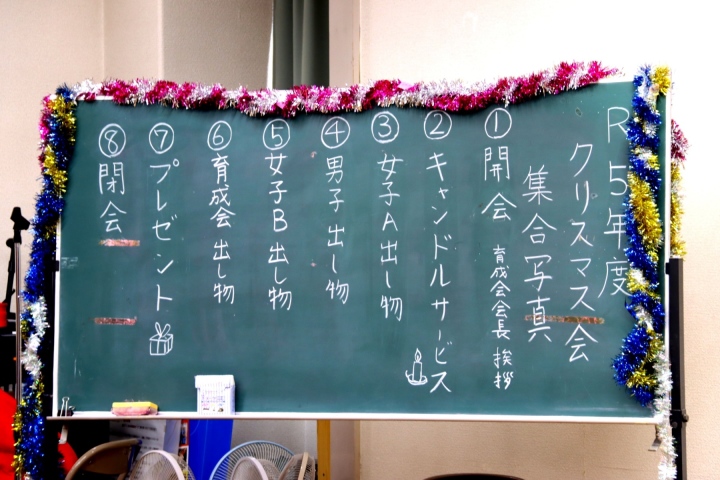 R5年度
クリスマス会
集合写真
①開会 育成会会長 挨拶
②キャンドルサービス
③女子A出し物
④男子出し物
⑤女子B出し物
⑥育成会 出し物
⑦プレゼント
⑧閉会